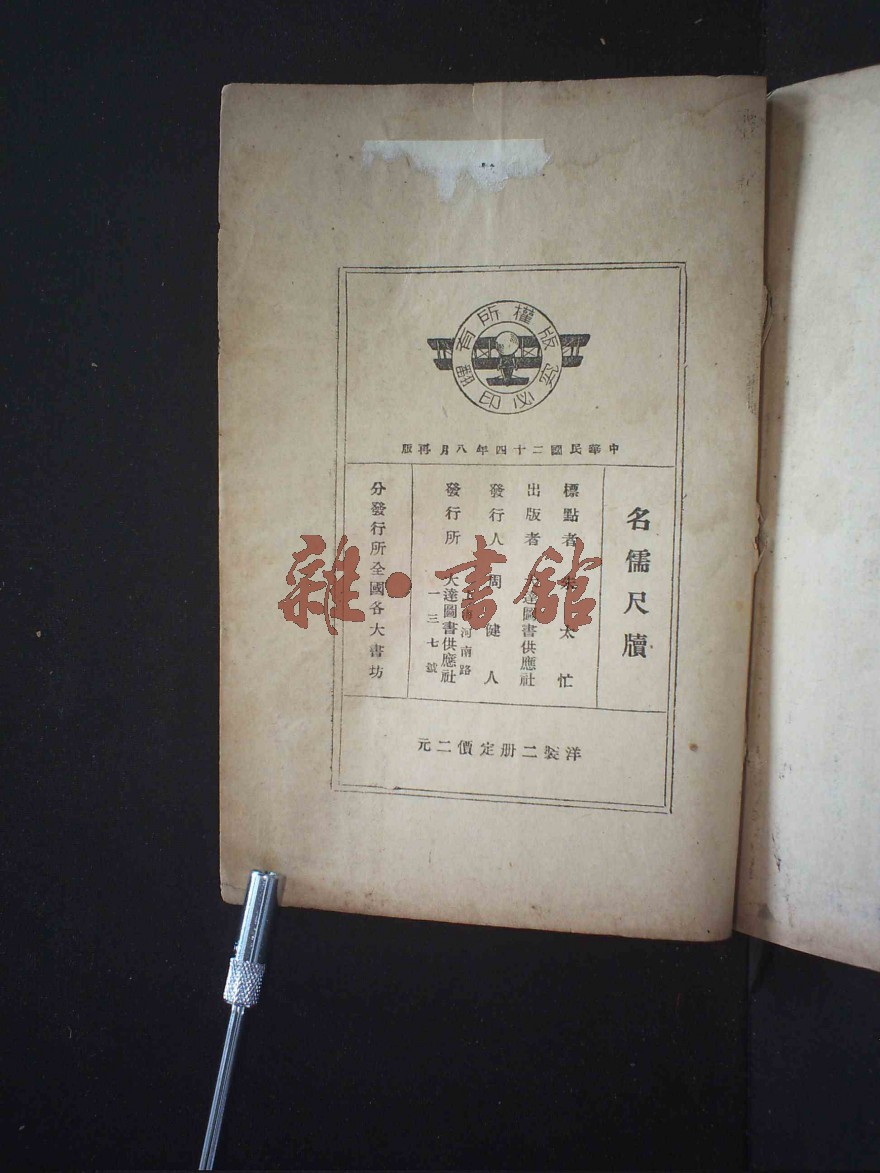 版權所有
翻印必究
中華民國二十四年八月再版
名儒尺牘
標點者 朱太忙
出版者 大達圖書供應社
發行人 周健人
發行所 大達圖書供應社
上海河南路
一三七號
分發行所全國各大書坊
洋裝二册定價二元
雜·書館